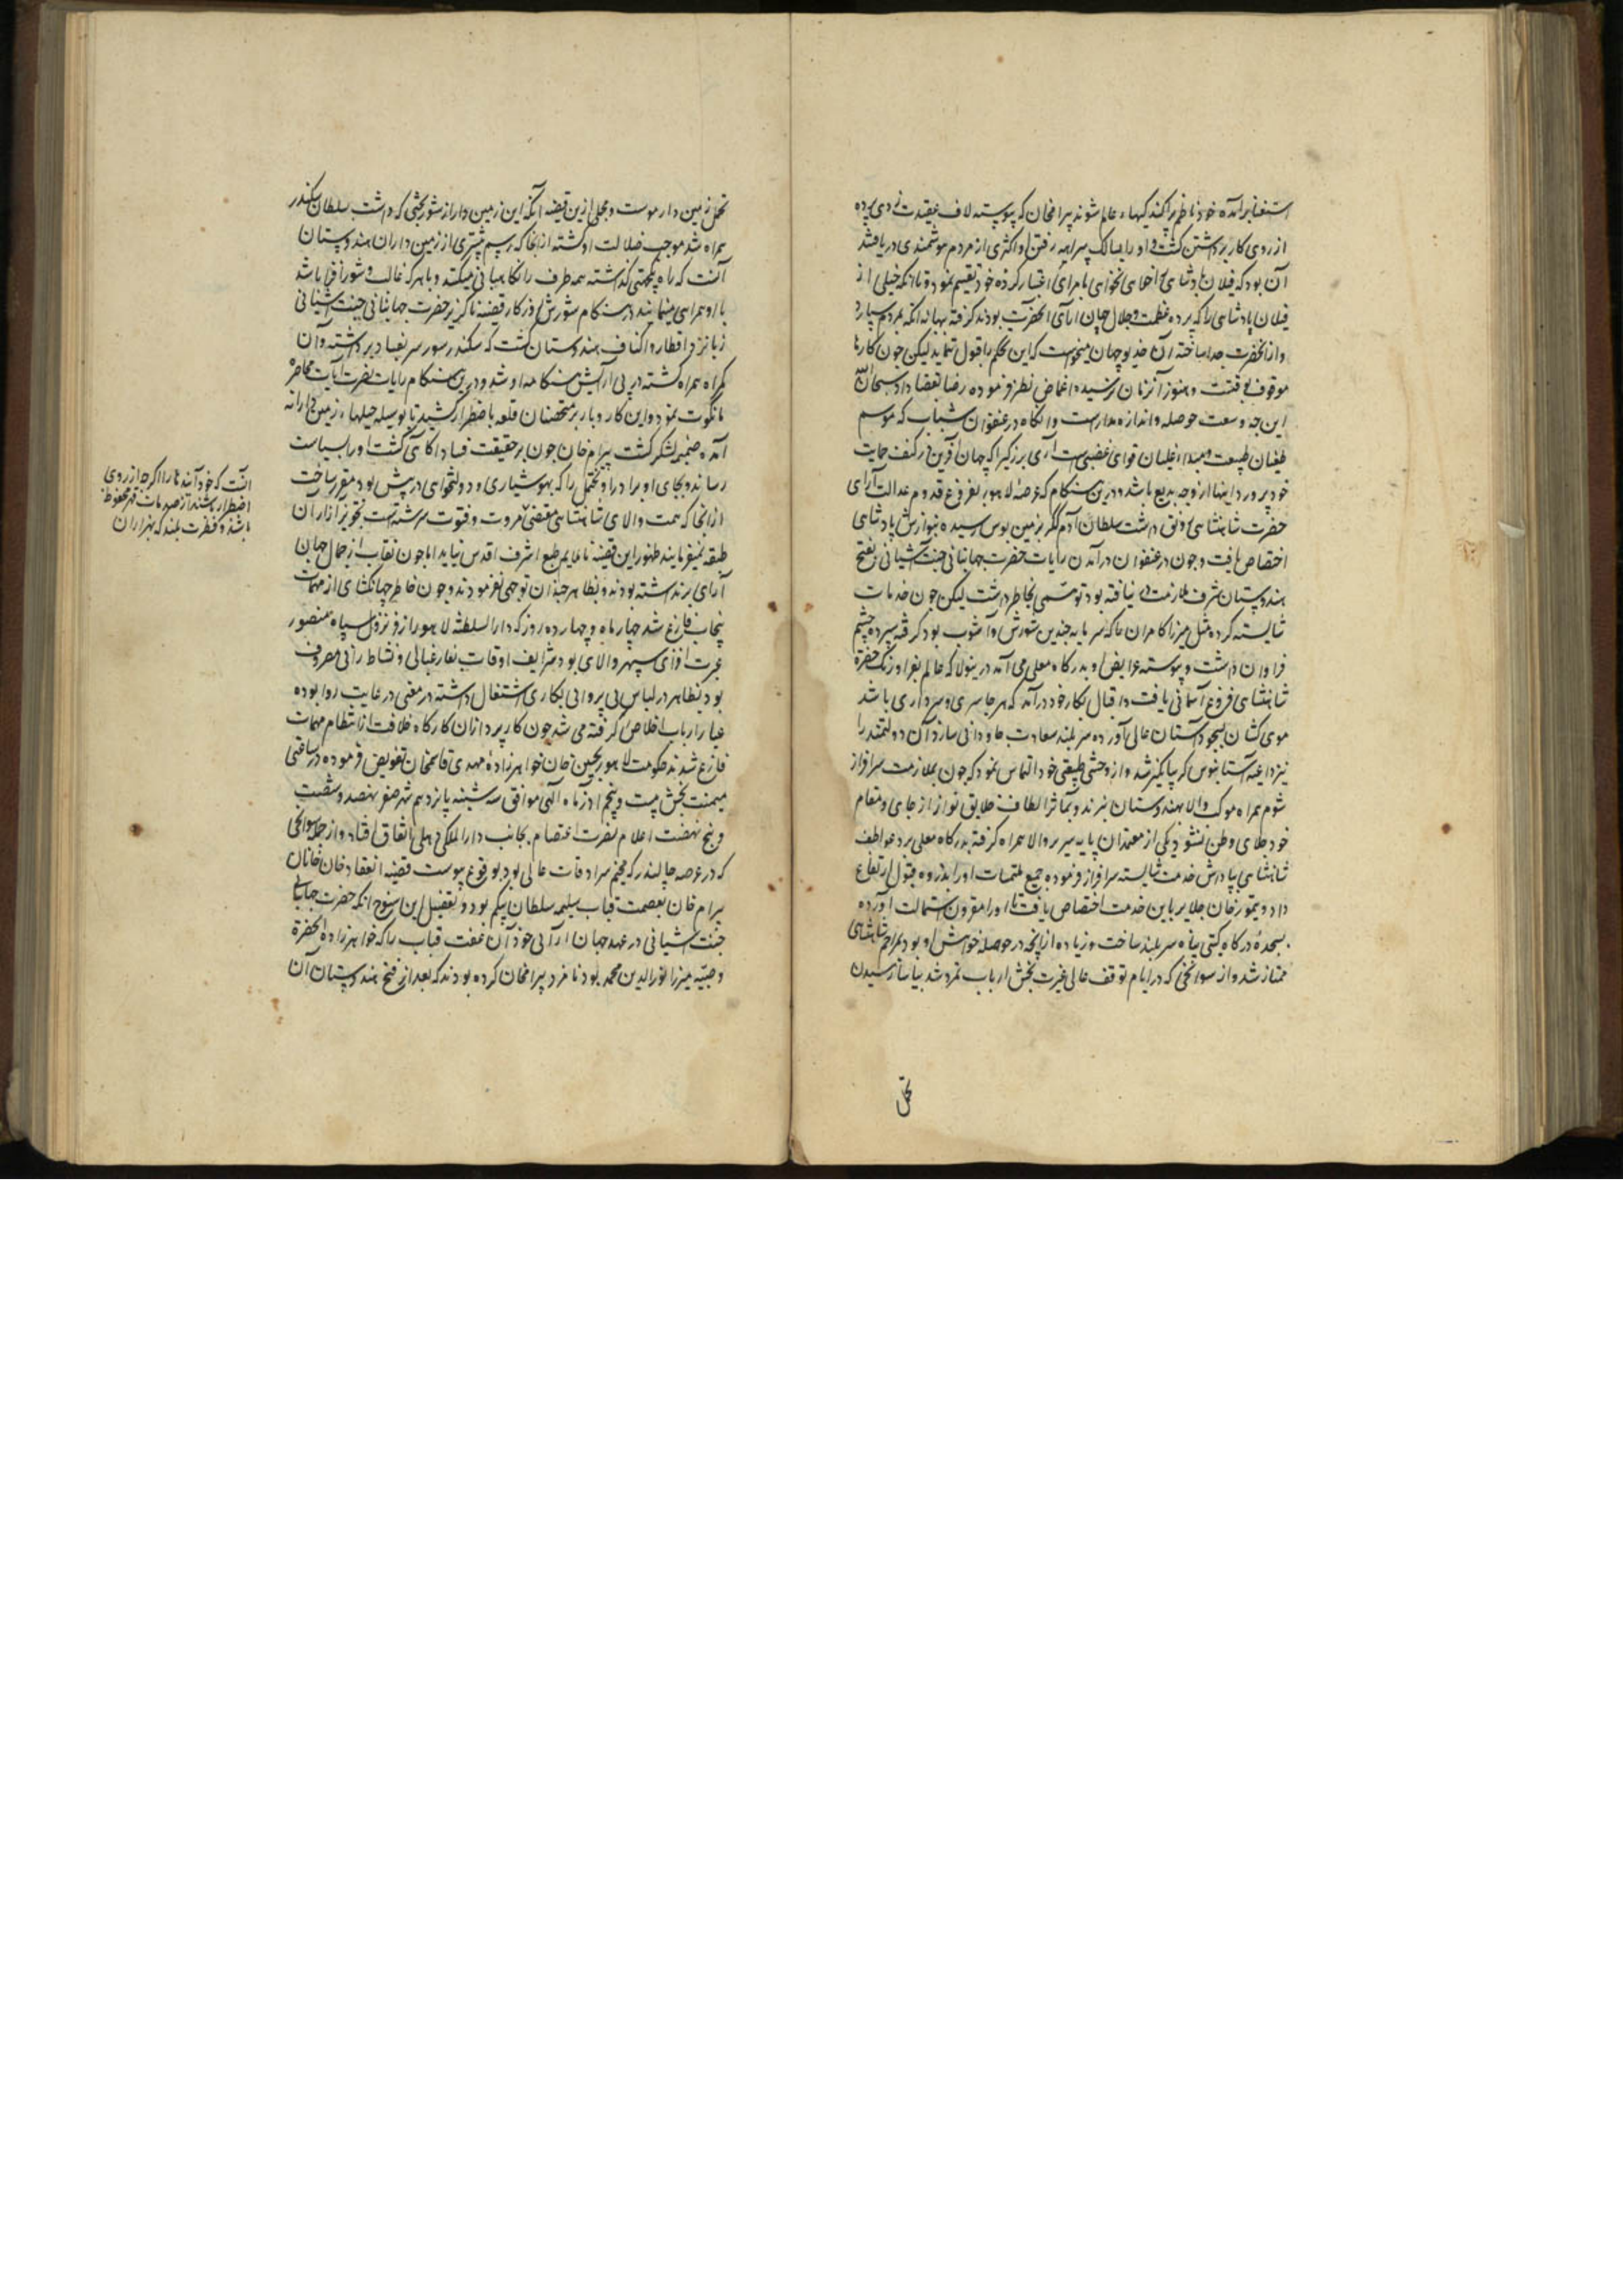 استغنا برآمده خود ناظر پراکندگیهاء عالم شوند بیرامخان که پیوسته لاف عقیدت زدی پرده
از روی کار برداشتن گشت و او را بمسالک بیراهه رفتن و اکثری از مردم هوشمندی دریافتند
آن بود که فیلان پادشاهی بامرای اعتبار کرده خود تقسیم نمود و تا آنکه خیلی از
فیلان پادشاهی را که پرده عظمت و جلال جهان آرای آنحضرت بودند گرفته ببهانه آنکه بمردم سپارد
و از آنحضرت جدا ساخته آن خدیو جهان میخواست که این تحکم را قبول ننماید لیکن چون کارها
موقوف بوقتست و هنوز آن زمان نرسیده اغماض نظر فرموده رضا بقضا داد سبحان الله
این چه وسعت حوصله و اندازه مداراست وانگاه در عنفوان شباب که موسم
طغیان طبیعت و مبداء غلیان قوای غضبی است آری بزرگی را که جهان آفرین در کنف حمایت
خود پرورد اینها از وچه بدیع باشد و درین هنگام که عرصهٔ لاهور بفروغ قدوم عدالت آرای
حضرت شاهنشاهی رونق داشت سلطان آدم گکر بزمین بوس رسیده بنوازش پادشاهی
اختصاص یافت و چون در عنفوان درآمدن رایات حضرت جهانبانی جنت آشیانی بفتح
هندوستان شرف ملازمت نیافته بود توهمی بخاطر داشت لیکن چون خدمات
شایسته کرده مثل میرزا کامران را که سرمایه چندین شورش و آشوب بود گرفته سپرده چشم
فراوان داشت و پیوسته عرایض او بدرگاه معلی می آمد درینولا که عالم بفر اورنگ حضرت
شاهنشاهی فروغ آسمانی یافت و اقبال بکار خود درآمد که هر جا سری و سرداری باشد
موی کشان بسجود آستان عالی آورده سربلند سعادت جاودانی سازد آن دولتمند را
نیز داعیه آستانبوس گریبانگیر شد و از وحشی طبیعتی خود التماس نمود که چون بملازمت سرافراز
شوم همراه موکب والا بهندوستان نبرند و بمآثر الطاف خلایق نواز از جای و مقام
خود جلای وطن نشود یکی از معتمدان پایه سریر والا همراه گرفته بدرگاه معلی برد عواطف
شاهنشاهی بپاداش خدمت شایسته سرافراز فرموده جمیع ملتمسات او را بذروه قبول ارتفاع
داد و تیمورخان جلایر باین خدمت اختصاص یافت تا او را مقرون استمالت آورده
بسجدهٔ درگاه گیتی پناه سربلند ساخت و زیاده از آنچه در حوصله خواهش او بود بمراحم شاهنشاهی
ممتاز شد و از سوانحی که در ایام توقف عالی عبرت بخش ارباب تمرد شد بیاسا رسیدن
تخمل
تخمل زمیندار موست و مجملی ازین قضیه آنکه این زمیندار از شوربختی که داشت بسلطان سکندر
همراه شد موجب ضلالت او گشته از آنجا که رسم بیشتری از زمین داران هندوستان
آنست که راه یکجهتی گذاشته همه طرف را نگاهبانی میکنند و با هر که غالب و شورافزا باشد
با او همراهی مینمایند در هنگام شورش که از کار قضیه ناگزیر حضرت جهانبانی جنت آشیانی
زبانزد اقطار و اکناف هندوستان گشت که سکندر سور سر بفساد برداشته آن
گمراه همراه گشته در پی آرایش هنگامه او شد و درین هنگام رایات نصرت آیات محاصرهٔ
مانکوت نمود و این کار و بار بر متحصنان قلعه باضطرار کشید تا بوسیله حیلهاء زمیندارانه
آمده ضمیمهٔ لشکر گشت بیرام خان چون بر حقیقت فساد آگاهی گشت او را بسیاست
رسانده و بجای او برادر او بختمل را که بهوشیاری و دولتخواهی در پیش بود مقرر ساخت
از آنجا که همت والای شاهنشاهی مقتضیٔ مروت و فتوت سرشته است تجویز آزار آن
طبقه نمیفرمایند ظهور این قضیه ناملایم طبع اشرف اقدس نیاید اما چون نقاب از جمال جهان
آرای برنداشته بودند و بظاهر چندان توجهی نفرمودند و چون خاطر جهانکشای از مهمات
پنجاب فارغ شد چهار ماه و چهارده روز که دارالسلطنه لاهور از فر نزول سپاه منصور
عبرت افزای سپهر والای بود شرایف اوقات بفارغبالی و نشاط رانی مصروف
بود بظاهر در لباس بی پروایی بکاری اشتغال داشته در معنی در غایت روا بوده
عیار ارباب اخلاص گرفته می شد چون کارپردازان کارگاه خلافت از انتظام مهمات
فارغ شدند حکومت لاهور بحسین خان خواهرزادهٔ مهدی قاسمخان تفویض فرموده در ساعتی
میمنت بخش بیست و پنجم آذرماه الهی موافق سه شنبه پانزدهم شهر صفر نهصد و شصت
و پنج نهضت اعلام نصرت اعتصام بجانب دارالملک دهلی اتفاق افتاد و از جمله سوانحی
که در عرصه جالندر که مخیم سرادقات عالی بود بوقوع پیوست قضیه انعقاد خان خانان
بیرام خان بعصمت قباب سلیمه سلطان بیگم بود و تفصیل این سنوح آنکه حضرت جهانبانی
جنت آشیانی در عهد جهان آرایی خود آن عفت قباب را که خواهرزاده آنحضرت
و صبیه میرزا نورالدین محمد بود نامزد بیرامخان کرده بودند که بعد از فتح هندوستان آن
آنست که خود آمدند تا را اگرچه از روی
اضطرار باشند از صدمات قهر محفوظ
باشند و فطرت بلند که بهزاران